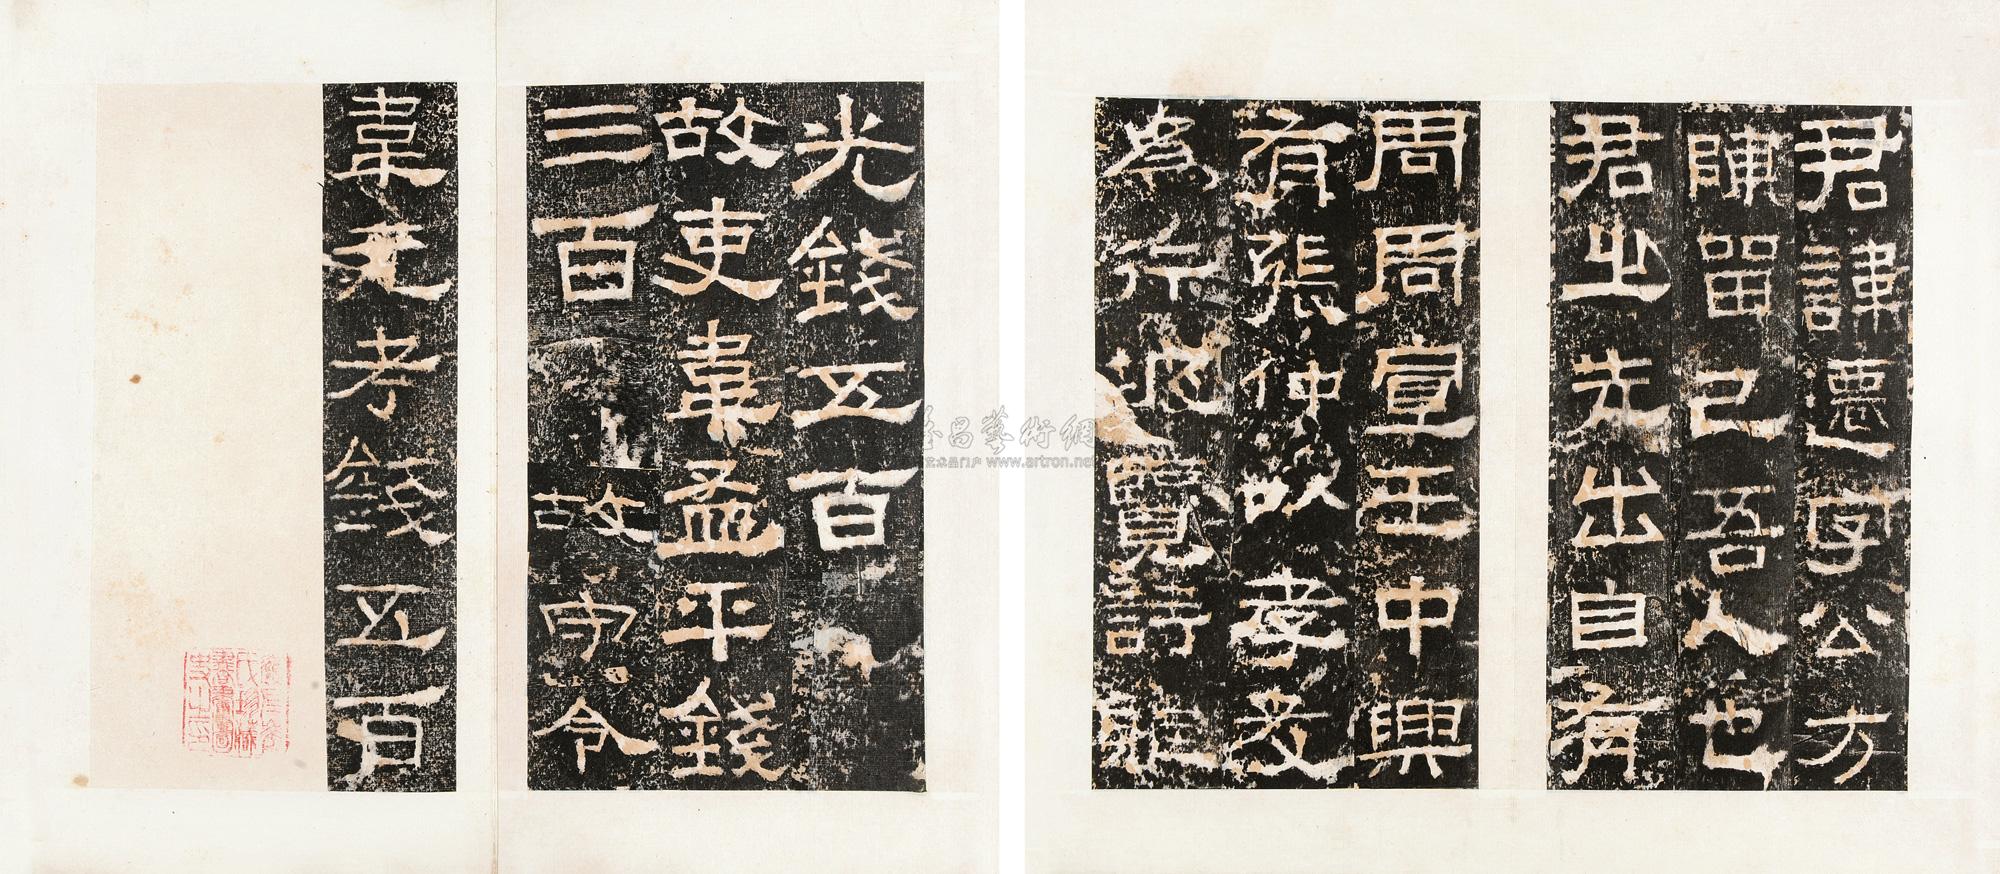 君諱遷字公方
陳留己吾人也
君之先出自有
周周宣王中興
有張仲以孝友
為行披覽詩雅
光錢五百
故吏韋孟平錢
三百
故守令
韋元考錢五百
雅昌藝術網
艺术品门户 www.artron.net